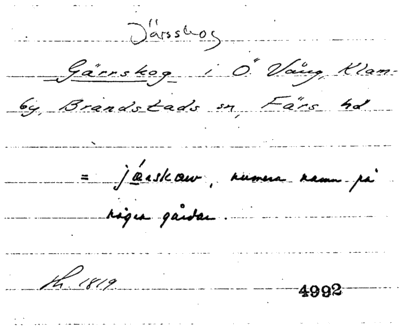 Järsskog
Gärrskog i Ö. Vång, Klam-
by, Brandstads sn, Färs hd
= járskaw, numera namn på
några gårdar.
Lh. 1819 4992